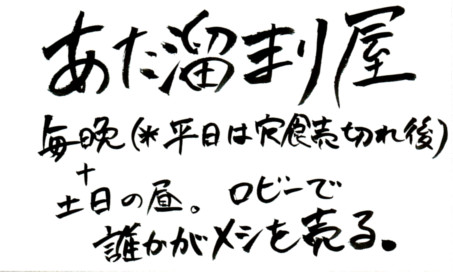 あだ溜まり屋
毎晩(*平日は定食売切れ後)
+
土日の昼。ロビーで
誰かがメシを売る。